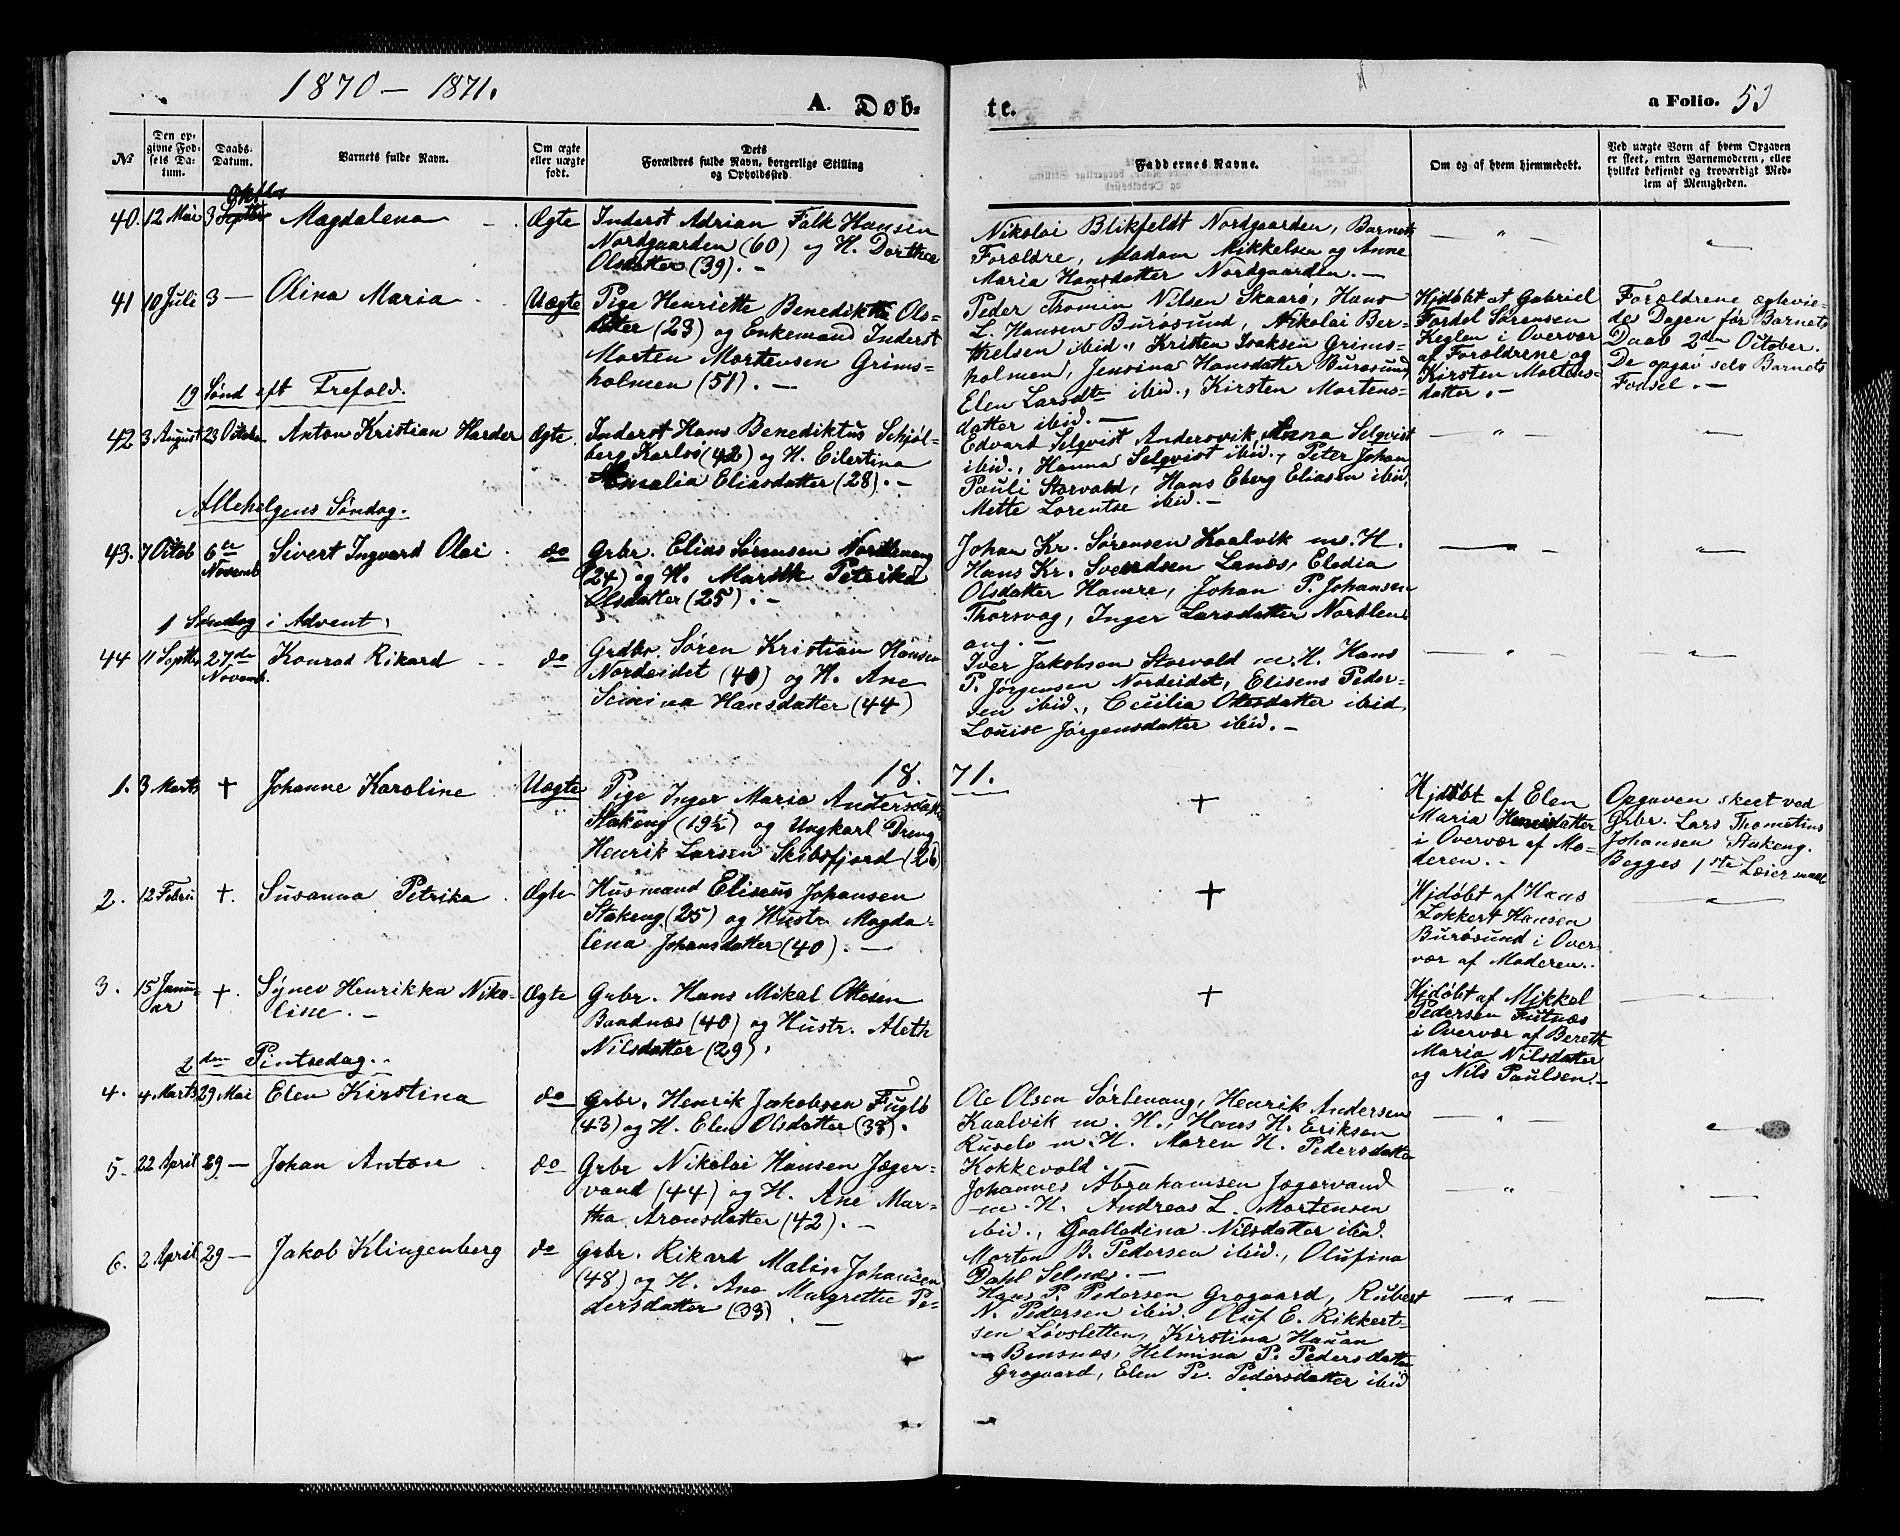 1870 – 1871.
A. Døb-
te.
a Folio. 53
№
Den op-
givne Fød-
sels Da-
tum.
Daabs-
Datum.
Barnets fulde Navn.
Om ægte
eller uægte
født.
Dets
Forældres fulde Navn, borgerlige Stilling
og Opholdssted.
Faddernes Navne.
Om og af hvem hjemmedøbt.
Ved uægte Børn af hvem Opgaven
er skeet, enten Barnemoderen, eller
hvilket bekjendt og troværdigt Med-
lem af Menigheden.
40. 12 Mai 3 Septbr Oktbr Magdalena Ægte
Inderst Adrian Falk Hansen
Nordgaarden (60) og H. Dorthea
Olsdatter (39). –
Nikolai Blikfeldt Nordgaarden, Barnets
Forældre, Madam Mikkelsen og Anne
Maria Hansdatter Nordgaarden. –
41 10 Juli 3 – Olina Maria Uægte
Pige Henriette Benedikte Ols-
datter (23) og Enkemand Inderst
Morten Mortensen Grims-
holmen (51). –
Peder Thomin Nilsen Skaarø, Hans
L. Hansen Burøsund, Nikolai Ber-
thelsen ibid., Kristen Isaksen Grims-
holmen, Jensina Hansdatter Burøsund
Elen Larsdtr ibid., Kirsten Mortens-
datter ibid. –
Hjdøbt af Gabriel
Fordel Sørensen
Keglen i Overvær
af Forældrene og
Kirsten Mortens-
datter. –
Forældrene ægtevie-
de Dagen før Barnets
Daab 2den October.
De opgav selv Barnets
Fødsel. –
19 Sønd eft Trefold.
42 3 August 23 Octobr Anton Kristian Harder Ægte
Inderst Hans Benediktus Schjøl-
berg Karlsø (42) og H. Eilertina
Amalia Eliasdatter (28). –
Edvard Selqvist Andersvik, Anna Selqvist
ibid., Hanna Selqvist ibid., Peter Johan
Pauli Storvold, Hans Eberg Eliasen ibid,
Mette Lorentse ibid. –
Allehelgens Søndag.
43. 7 Octob 6te Novemb Sivert Ingvard Olai do
Grbr. Elias Sørensen Nordlenang
(24) og H. Marith Petrika
Olsdatter (25). –
Johan Kr. Sørensen Kaalvik m. H.
Hans Kr. Svendsen Lanæs, Eledia
Olsdatter Hamre, Johan P. Johansen
Thorsvag, Inger Larsdatter Nordlen-
ang. –
1 Søndag i Advent.
44 11 Septbr 27de Novemb. Konrad Rikard do
Grdbr. Søren Kristian Hansen
Nordeidet (40) og H. Ane
Simina Hansdatter (44)
Iver Jakobsen Storvold m. H. Hans
P. Jørgensen Nordeidet, Elisens Peder-
sen ibid., Cecilia Ottesdatter ibid,
Louise Jørgensdatter ibid. –
18 71.
1. 3 Marts + Johanne Karoline Uægte
Pige Inger Maria Andersdatter
Stakeng (19½) og Ungkarl Dreng
Henrik Larsen Skibsfjord (26)
+
Hjdøbt af Elen
Maria Hansdatter
i Overvær af Mo-
deren. –
Opgaven skeet ved
Grbr. Lars Thometius
Johansen Stakeng.
Begges 1ste Leiermaal
2. 12 Febru + Susanna Petrika Ægte
Husmand Eliseus Johansen
Stakeng (25) og Hustr. Magda-
lena Johansdatter (40). –
+
Hjdøbt af Hans
Lokkert Hansen
Burøsund i Over-
vær af Moderen.
3. 15 Janu-
ar + Synev Henrikka Niko-
line. – Ægte
Grbr. Hans Mikal Ottesen
Baadnæs (40) og Hustr. Aleth
Nilsdatter (29).
+
Hjdøbt af Mikkel
Pedersen Futnæs
i Overvær af Bereth
Maria Nilsdatter
og Nils Paulsen. –
2den Pintsedag.
4. 4 Marts 29 Mai Elen Kirstina do
Grbr. Henrik Jakobsen Fuglø
(43) og H. Elen Olsdatter (38).
Ole Olsen Sørlenang, Henrik Andersen
Kaalvik m. H., Hans H. Eriksen
Ruselv m. H. Maren H. Pedersdatter
Kokkevold.
5. 22 April 29 – Johan Anton do
Grbr Nikolai Hansen Jæger-
vand (44) og H. Ane Mar-
tha Aronsdatter (42). –
Johannes Abrahamsen Jægervand
m. H. Andreas L. Mortensen
ibid., Gaallodina Nilsdatter ibid.
Morten B. Pedersen ibid., Olufina
Dahl Selnæs. –
6. 2 April 29 – Jakob Klingenberg do
Grbr. Rikard Malin Johansen
(48) og H. Ane Margrethe Pe-
dersdatter (33). –
Hans P. Pedersen Grogaard, Rubert
N. Pedersen ibid. Oluf E. Rikkert-
sen Løvsletten, Kirstina Hauan
Bensnæs, Helmina P. Pedersdatter
Grogaard, Elen Pr. Pedersdatter ibid